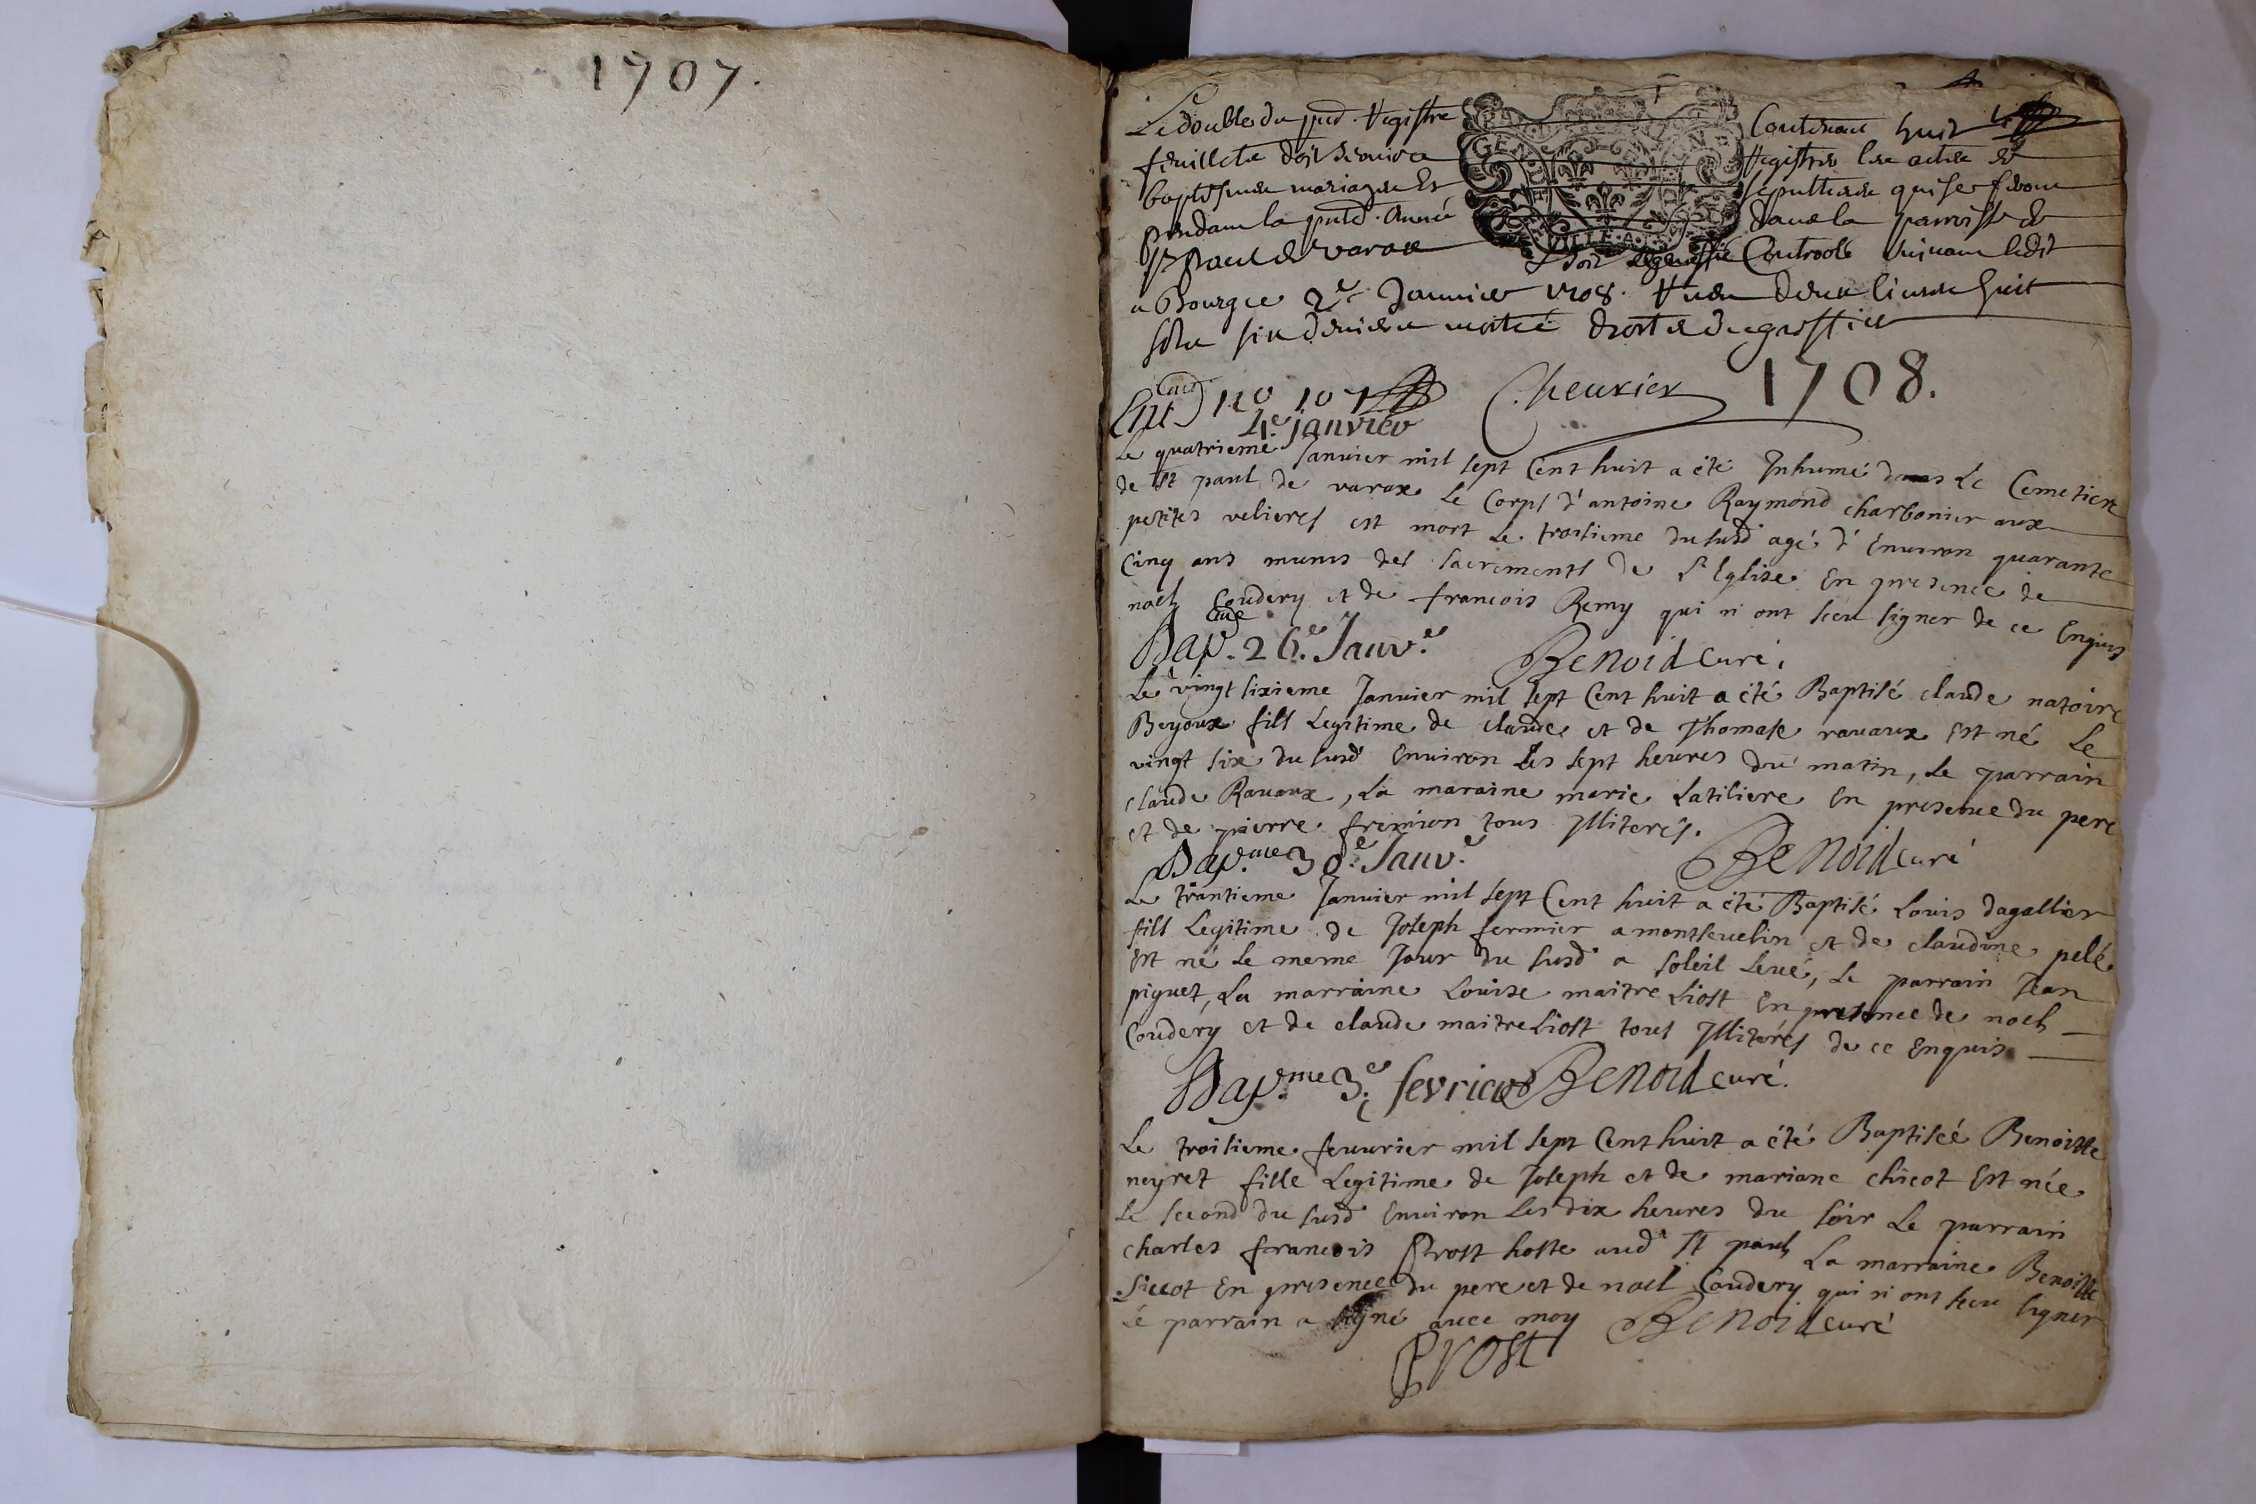 1707.
Le double du pnt Registre Contenant huit
feuillets doit servir a Registrer les actes de
baptesmes mariages Et sepultures qui se feront
pendant la pnte Année dans la parroisse de
St paul de varax Controole suivant ledit
a Bourg ce 2e Janvier 1708. deux livres huit
sols six deniers moitié droits de greffier
GEN
VILLE
Chevrier 1708.
4e janvier
Le quatrieme Janvier mil sept Cent huit a été Inhumé dans Le Cemetiere
de St paul de varax Le Corps d'antoine Raymond charbonier aux
petites velieres est mort Le troisieme du susd agé d'Environ quarante
Cinq ans munis des sacrements de L'Eglise En presence de
noel Coudery et de francois Remy qui n ont sceu signer de ce Enquis
Bap. 26.e Janv.e Benoid Curé.
Le vingt sixieme Janvier mil sept Cent huit a été Baptisé claude natoire
Beyoux fils Legitime de claude et de Thomase ravaux Est né Le
vingt six du susd Environ Les sept heures du matin, Le parrain
claude Ravaux, La maraine marie Latiliere En presence du pere
et de pierre fremion tous Illiterés.
Bap.me 30.e Janv.e Benoid curé
Le trantieme Janvier mil sept Cent huit a été Baptisé Louis dagallier
fils Legitime de Joseph fermier a montsevelin et de claudine pelé
Est né Le meme Jour du susd a soleil Levé, Le parrain Jean
piguet, La marraine Louise maitreLiost En presence de noel
Coudery et de claude maitreLiost tous Illiterés de ce Enquis
Bap.me 3.e fevrier Benoid curé.
Le troisieme fevvrier mil sept Cent huit a été Baptiseé Benoitte
neyret fille Legitime de Joseph et de mariane chicot Est née
Le second du susd Environ Les dix heures du soir Le parrain
charles francois Prost hoste aud St paul La marraine Benoitte
Siccot En presence du pere et de noel Coudery qui n ont sceu signer
Le parrain a signé avec moy Benoid curé
Prost